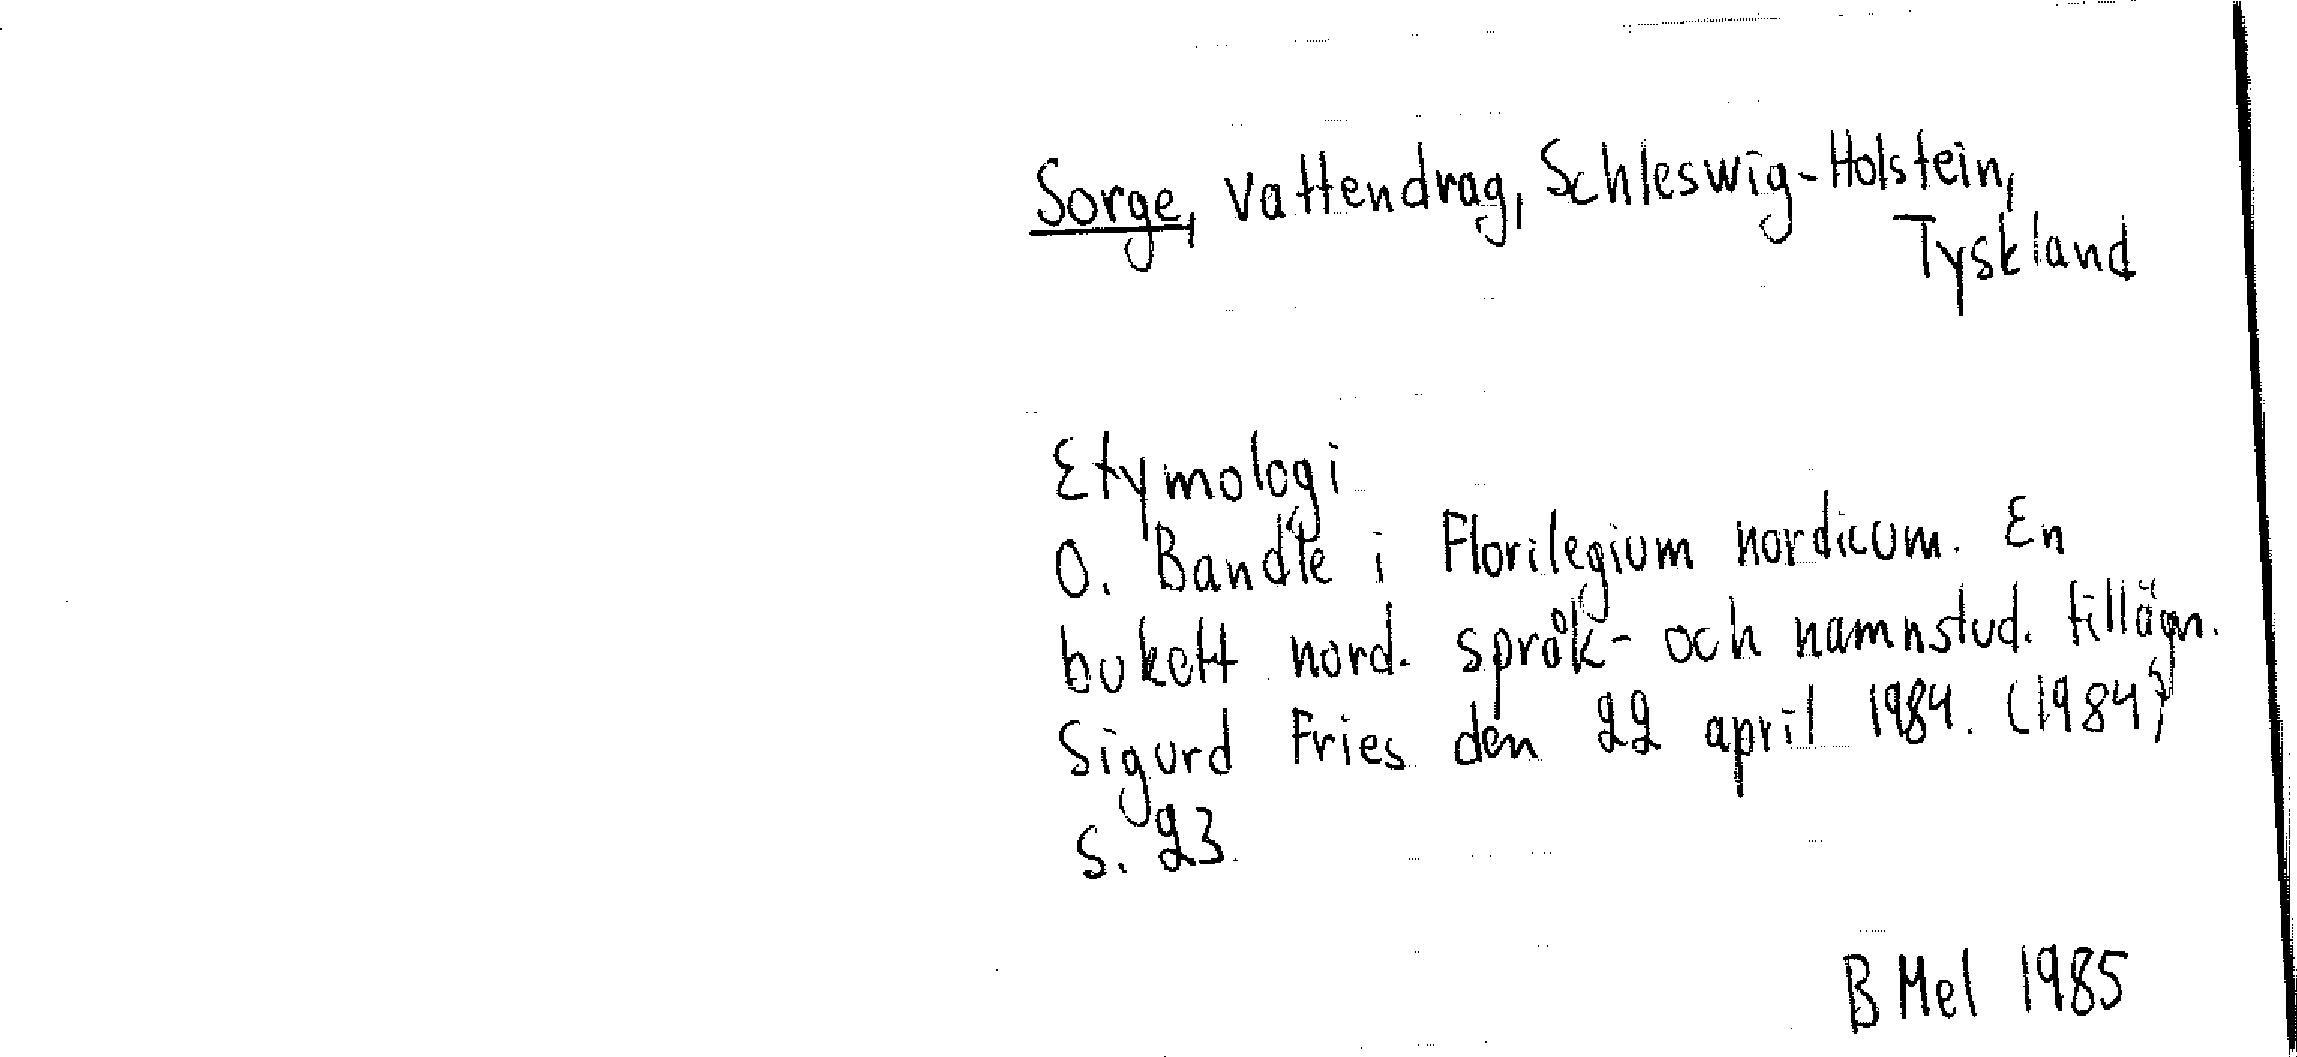 Sorge, vattendrag, Schleswig-Holstein,
Tyskland
Etymologi
O. Bandle i Florilegium nordicum. En
bukett nord. språk- och namnstud. tillägn.
Sigurd Fries den 22 april 1984. (1984)
s. 23
B Mel 1985